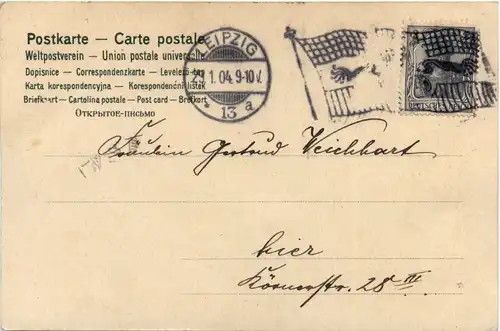 Postkarte — Carte postale
Weltpostverein — Union postale universelle
Dopisnice — Correspondenzkarte — Levelező-lap
Karta korespondencyjna — Korespondenční lístek
Briefkaart — Cartolina postale — Post card — Brefkort
Открытое-письмо
LEIPZIG
1.04.9-10V.
* 13 a
Fräulein Gertrud Veichhart
hier
Körnerstr. 28 III